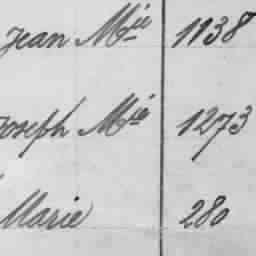 Jean Mie 1138
Joseph Mie 1273
Marie 280